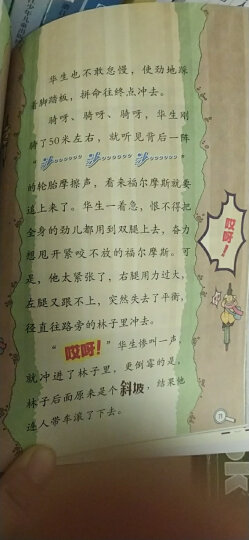 华生也不敢怠慢，使劲地踩
着脚踏板，拼命往终点冲去。
骑呀、骑呀、骑呀，华生刚
骑了50米左右，就听见背后一阵
“沙……沙……沙……”
的轮胎摩擦声，看来福尔摩斯就要
追上来了。华生一着急，恨不得把
全身的劲儿都用到双腿上去，奋力
想甩开紧咬不放的福尔摩斯。可
是，他太紧张了，右腿用力过大，
左腿又跟不上，突然失去了平衡，
径直往路旁的林子里冲去。
“哎呀！”华生惨叫一声，
就冲进了林子里，更倒霉的是，
林子后面原来是个斜坡，结果他
连人带车滚了下去。
哎呀！